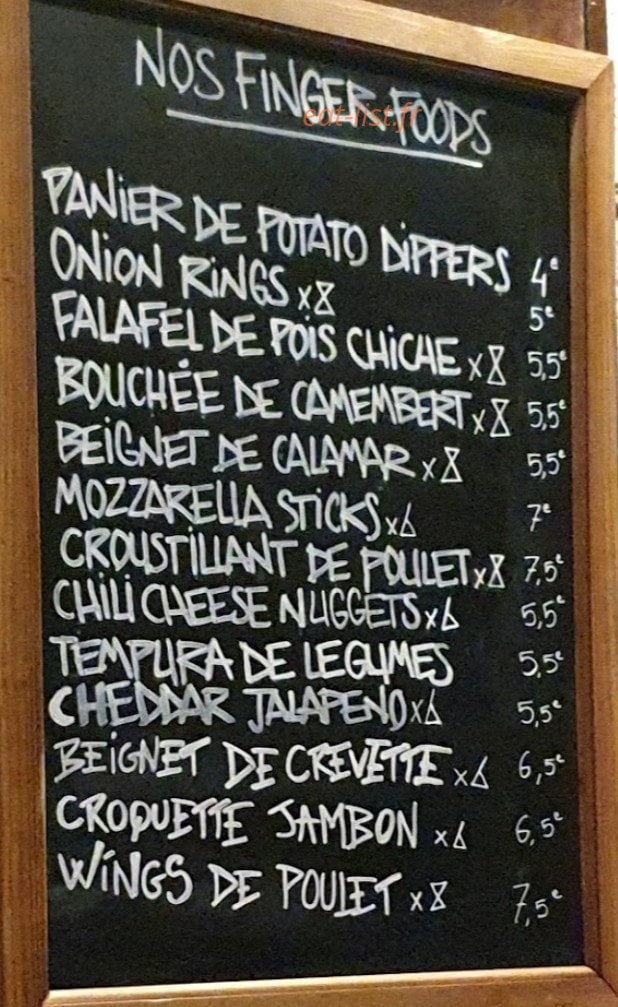 NOS FINGER FOODS
eat-list.fr
PANIER DE POTATO DIPPERS 4€
ONION RINGS x8 5€
FALAFEL DE POIS CHICHE x8 5,5€
BOUCHÉE DE CAMEMBERT x8 5,5€
BEIGNET DE CALAMAR x8 5,5€
MOZZARELLA STICKS x6 7€
CROUSTILLANT DE POULET x8 7,5€
CHILI CHEESE NUGGETS x6 5,5€
TEMPURA DE LEGUMES 5,5€
CHEDDAR JALAPENO x6 5,5€
BEIGNET DE CREVETTE x6 6,5€
CROQUETTE JAMBON x6 6,5€
WINGS DE POULET x8 7,5€